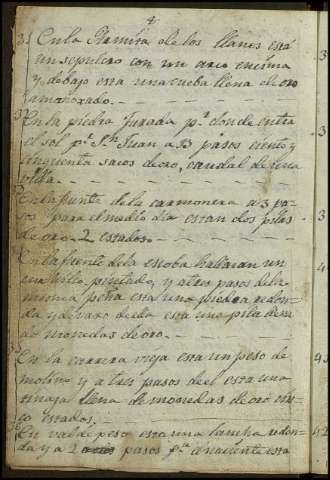 4
3 En la Ermita de los llanos está
un sepulcro con un arco encima
y debajo esta una cueba llena de oro
amonorado. -
En la piedra Jurada pr. donde entra
el sol pr. Sn. Juan a 53 pasos ciento y
cinquenta sacos de oro, caudal de una
Villa.
En la fuente de la carmonera a 3 pa-
sos para el medio dia estan dos pilas
de oro 2 estados.
En la fuente de la escoba hallaran un
cuchillo pintado, y a tres pasos de la
misma peña esta una piedra redon-
da y devaxo de ella esta una pila de
monedas de oro.
En la carrera vieja esta un peso de
molino y a tres pasos de el esta una
tinaja llena de monedas de oro cin-
co estados.
En valde peso esta una lancha redon-
da y a 2 pasos pa. el naciente esta
3
3
3
4
43
42